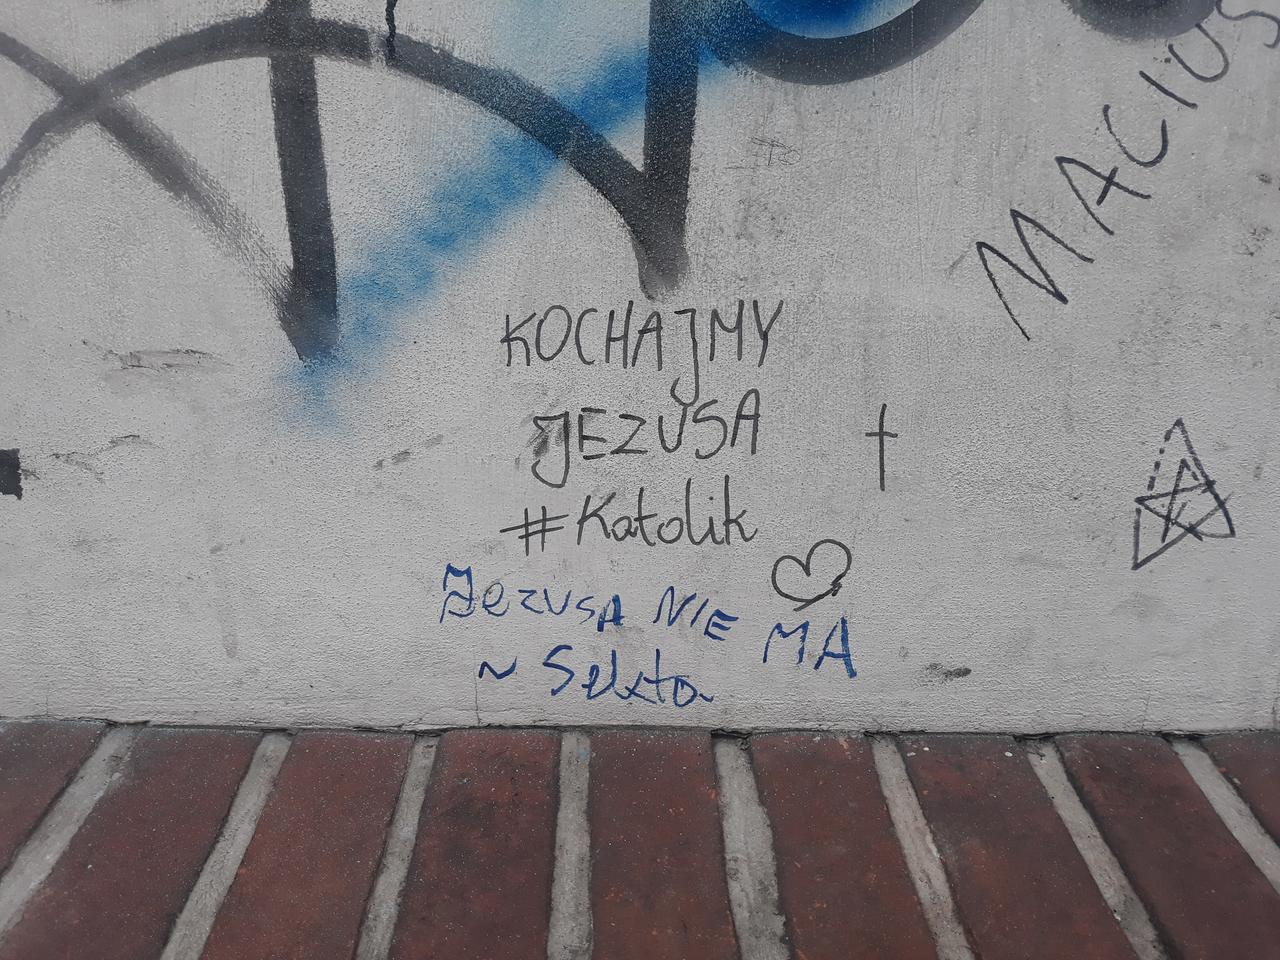 MACIUS
KOCHAJMY
JEZUSA
#Katolik
Jezusa NIE MA
~ Sekta